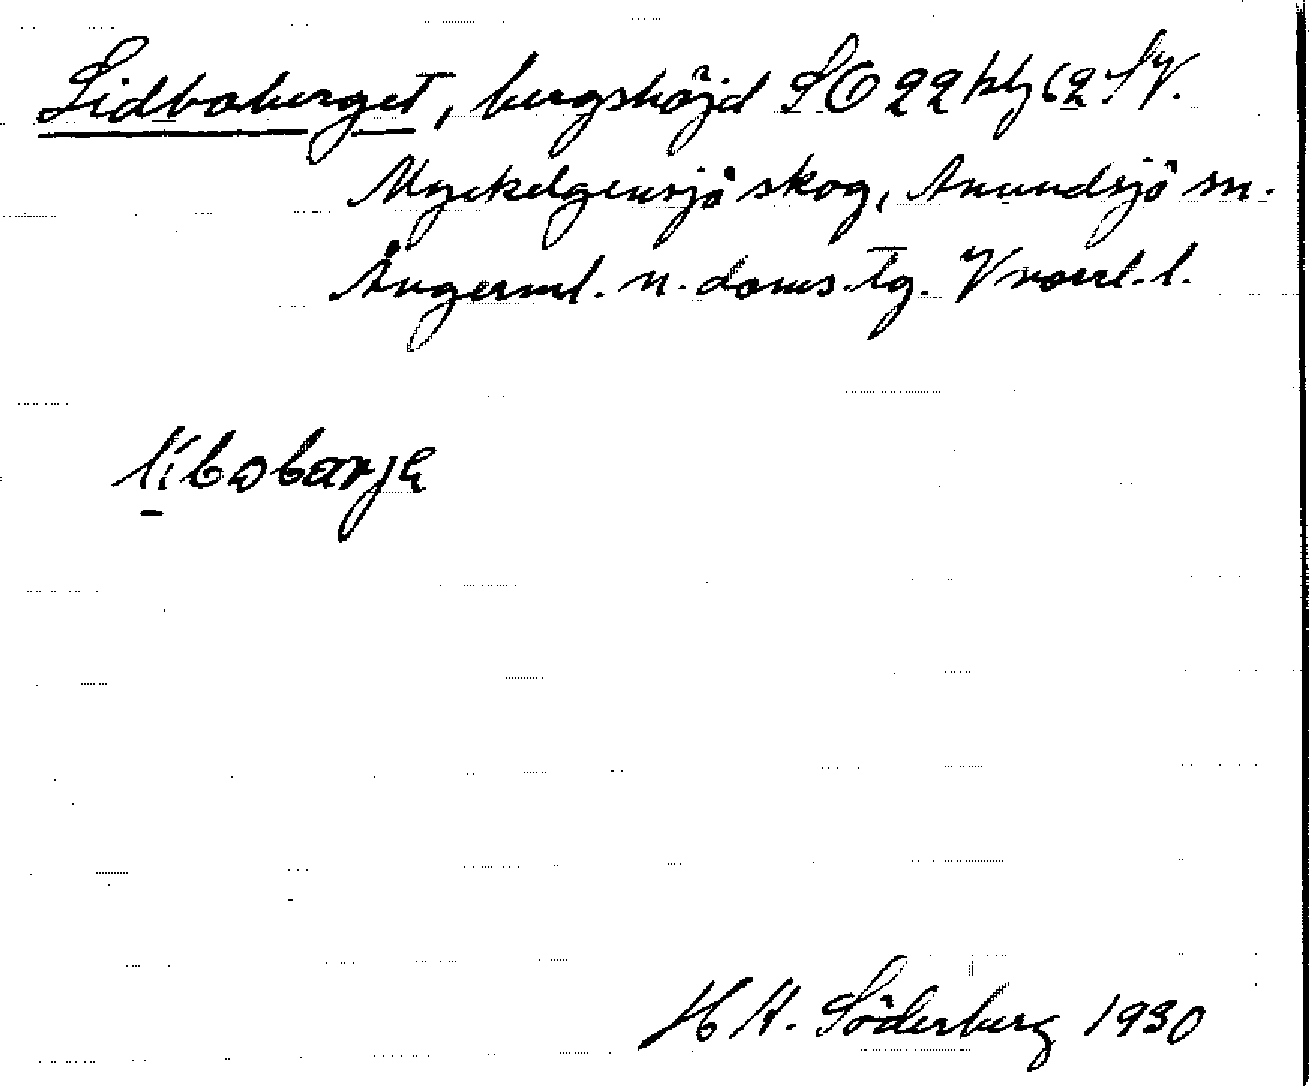 Lidboberget, bergshöjd SO 22 bl 62 SV.
Myckelgensjö skog, Anundsjö sn.
Ångerml. n. doms.tg. Vnorrl. l.
libobarja
H A. Söderberg 1930